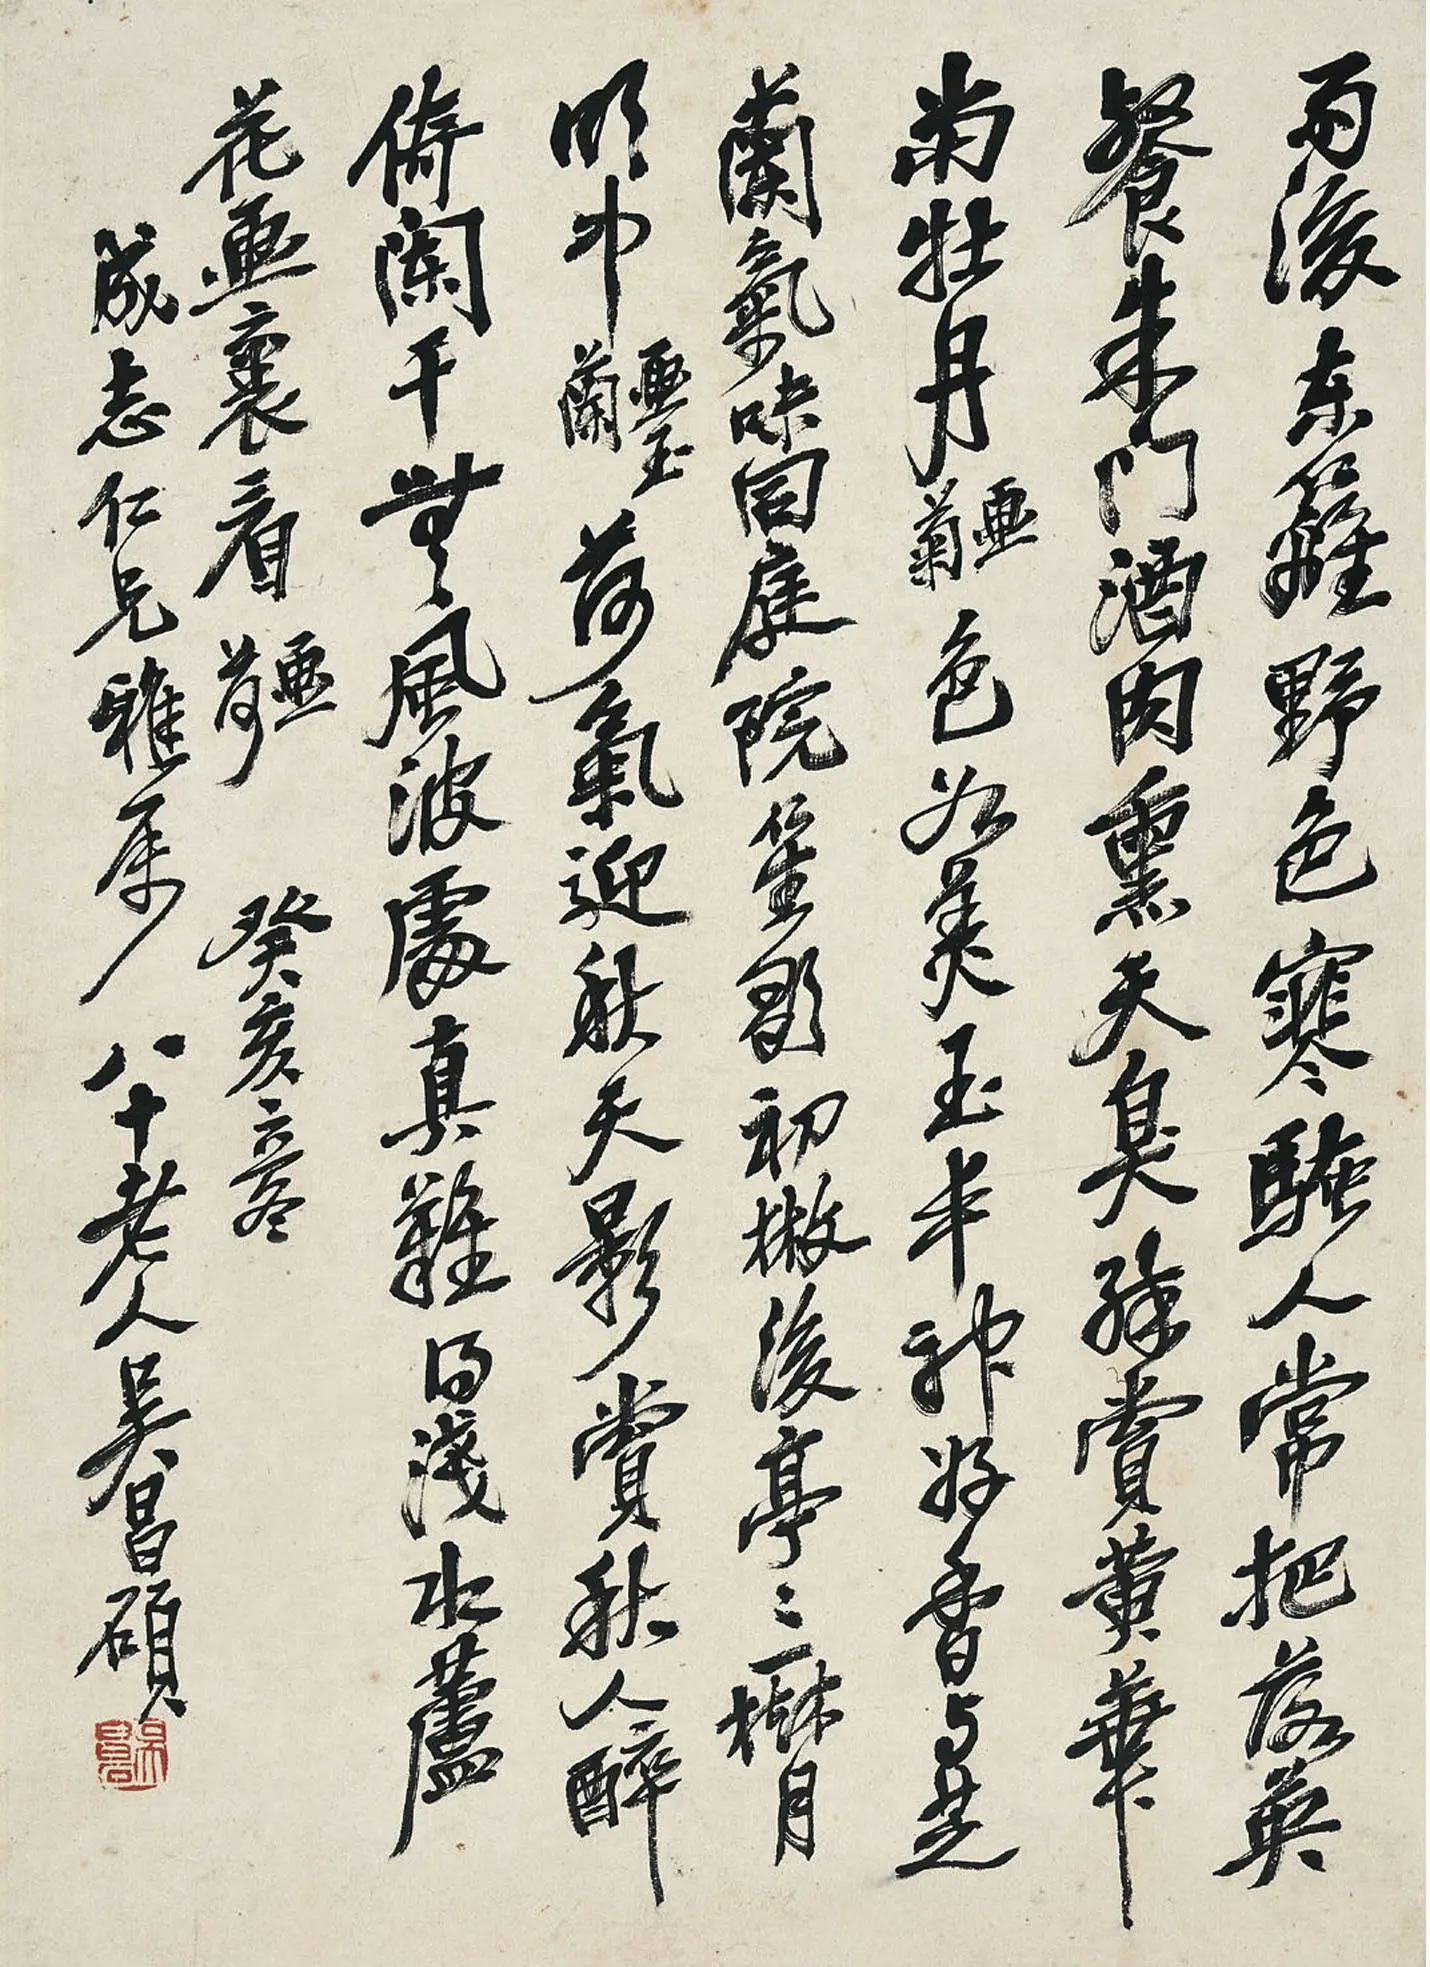 雨後東籬野色寒騷人常把落英
餐朱門酒肉熏天臭除賞黃華
尚牡丹畫菊色如美玉丰神好香與芝
蘭氣味同庭院笙歌初撤後亭亭一樹月
明中畫玉蘭荷氣迎秋天影賞秋人醉
倚闌干無風波處真難得淺水蘆
花畫裏看畫荷癸亥立冬
成志仁兄雅屬八十老人吳昌碩